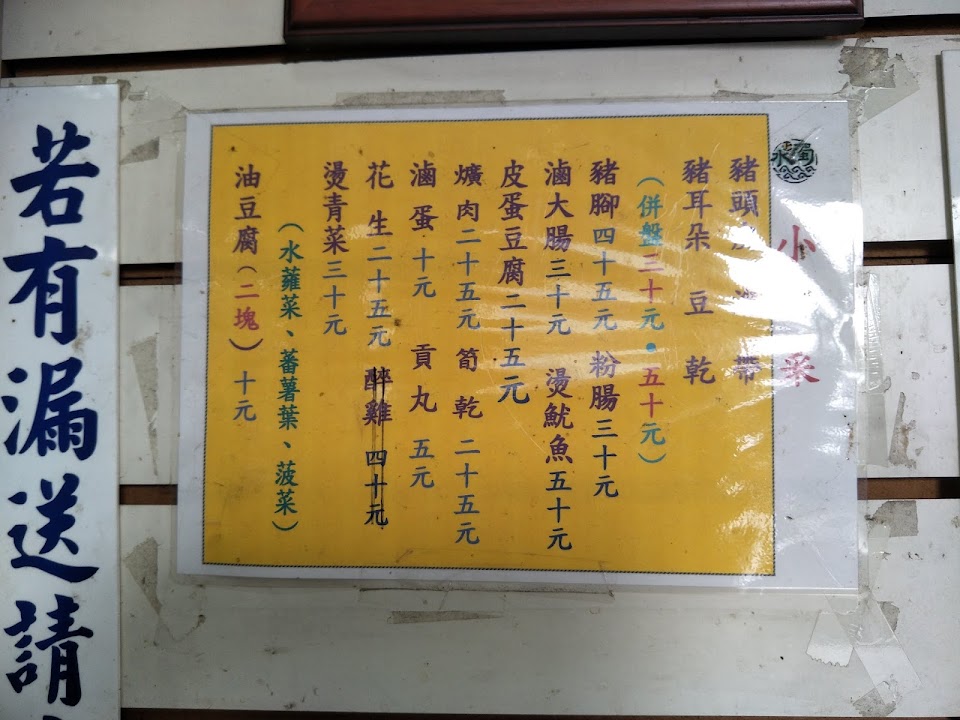 小菜
豬頭 帶
豬耳朵 豆乾
(併盤三十元•五十元)
豬腳四十五元 粉腸三十元
滷大腸三十元 燙魷魚五十元
皮蛋豆腐二十五元
爌肉二十五元 筍乾二十五元
滷蛋十元 貢丸五元
花生二十五元 醉雞四十元
燙青菜三十元
(水蕹菜、蕃薯葉、菠菜)
油豆腐(二塊)十元
若有漏送請